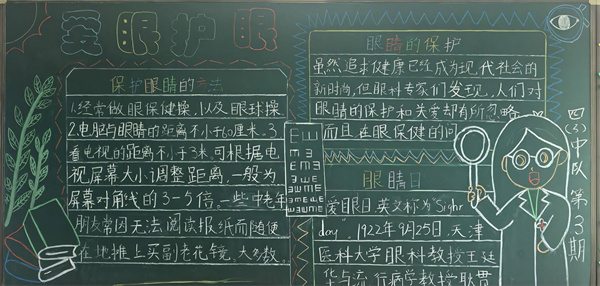 爱眼护眼
保护眼睛的方法
1.经常做眼保健操,以及眼球操
2.电脑与眼睛的距离不小于60厘米。3.
看电视的距离不小于3米,可根据电
视屏幕大小调整距离,一般为
屏幕对角线的3-5倍,一些中老年
朋友常因无法阅读报纸而随便
在地摊上买副老花镜,大多数
眼睛的保护
虽然追求健康已经成为现代社会的
新时尚,但眼科专家们发现,人们对
眼睛的保护和关爱却有所忽略
而且在眼保健的问
眼睛日
爱眼日,英文称为"Sight
day",1922年9月25日,天津
医科大学眼科教授王延
华与流行病学教授耿贯
四(3)中队第3期